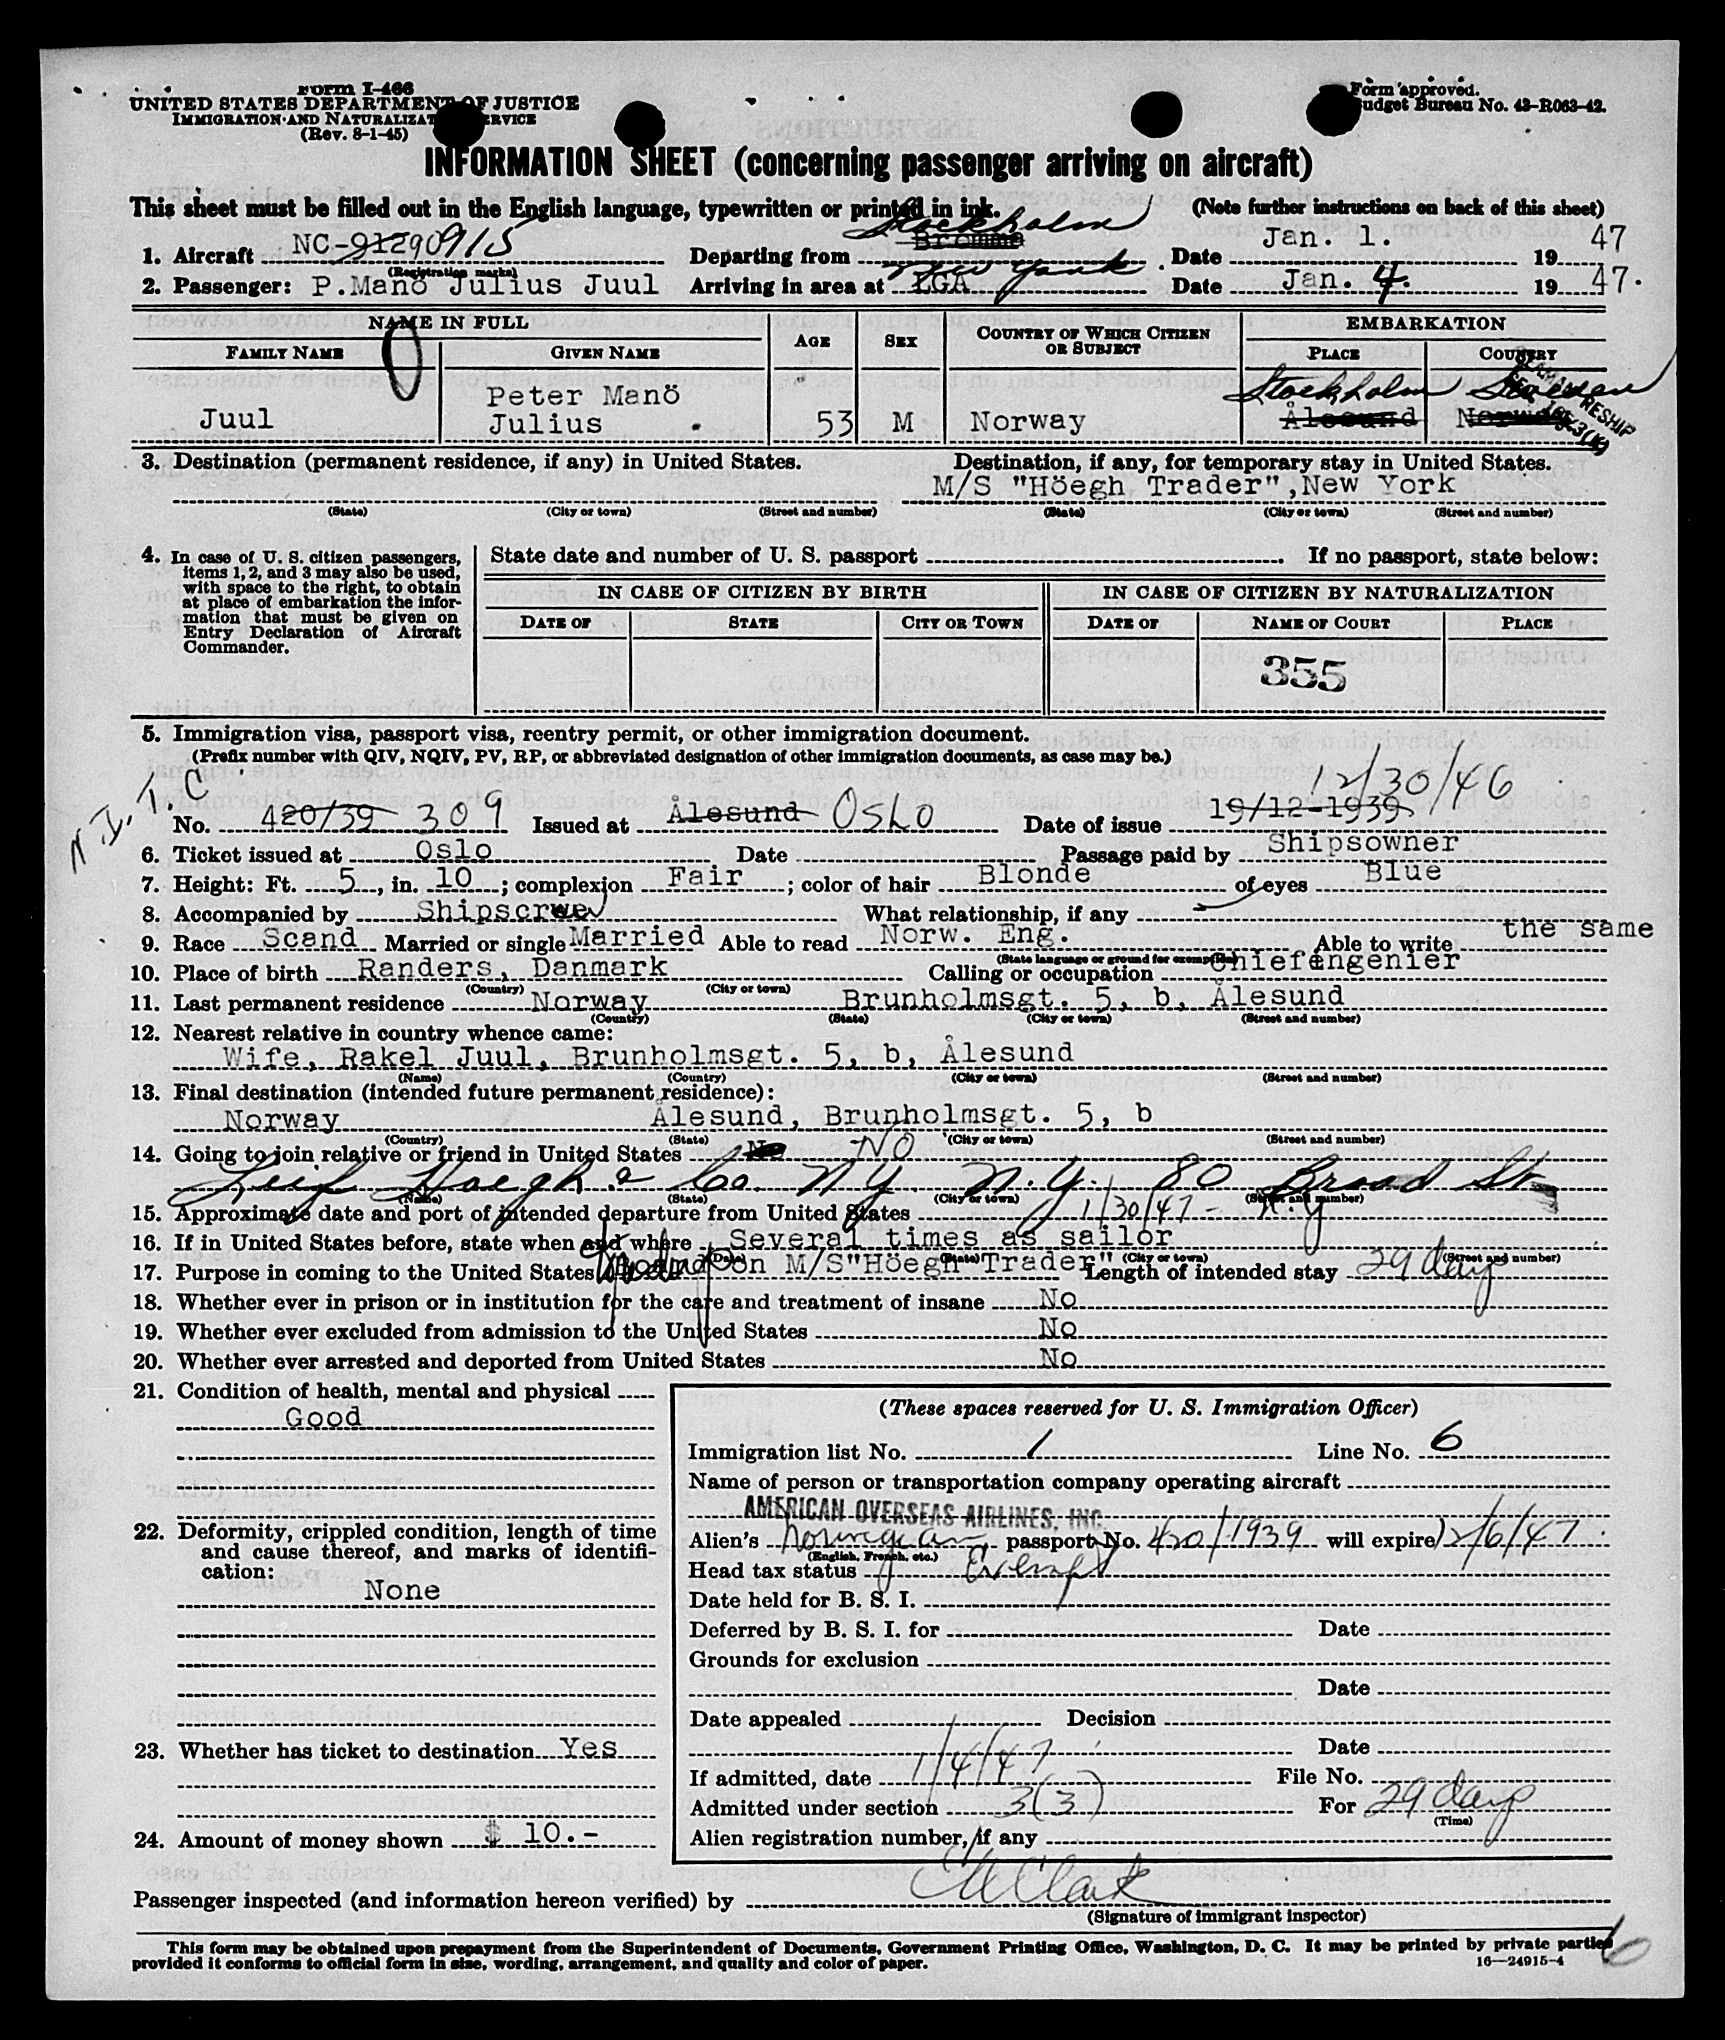 Form I-466
UNITED STATES DEPARTMENT OF JUSTICE
IMMIGRATION AND NATURALIZATION SERVICE
(Rev. 8-1-45)
Form approved.
Budget Bureau No. 43-R063-42.
INFORMATION SHEET (concerning passenger arriving on aircraft)
This sheet must be filled out in the English language, typewritten or printed in ink. (Note further instructions on back of this sheet)
1. Aircraft NC-91290 915 Departing from Bromma Stockholm Date Jan. 1. 1947
(Registration marks)
2. Passenger: P.Manö Julius Juul Arriving in area at LGA New York Date Jan. 4. 1947.
NAME IN FULL AGE SEX COUNTRY OF WHICH CITIZEN OR SUBJECT EMBARKATION
FAMILY NAME GIVEN NAME PLACE COUNTRY
Juul Peter Manö Julius 53 M Norway Ålesund Stockholm Norway Sweden
3. Destination (permanent residence, if any) in United States. Destination, if any, for temporary stay in United States.
M/S "Höegh Trader", New York
(State) (City or town) (Street and number) (State) (City or town) (Street and number)
4. In case of U. S. citizen passengers, items 1, 2, and 3 may also be used, with space to the right, to obtain at place of embarkation the information that must be given on Entry Declaration of Aircraft Commander.
State date and number of U. S. passport If no passport, state below:
IN CASE OF CITIZEN BY BIRTH IN CASE OF CITIZEN BY NATURALIZATION
DATE OF STATE CITY OR TOWN DATE OF NAME OF COURT PLACE
355
5. Immigration visa, passport visa, reentry permit, or other immigration document.
(Prefix number with QIV, NQIV, PV, RP, or abbreviated designation of other immigration documents, as case may be.)
N.I.T.C 12/30/46
No. 420/39 309 Issued at Ålesund Oslo Date of issue 19/12-1939
6. Ticket issued at Oslo Date Passage paid by Shipsowner
7. Height: Ft. 5, in. 10; complexion Fair; color of hair Blonde of eyes Blue
8. Accompanied by Shipscrwe What relationship, if any
9. Race Scand Married or single Married Able to read Norw. Eng. Able to write the same
(State language or ground for exemption)
10. Place of birth Randers, Danmark Calling or occupation Chiefengenier
(Country) (City or town)
11. Last permanent residence Norway Brunholmsgt. 5, b, Ålesund
(Country) (State) (City or town) (Street and number)
12. Nearest relative in country whence came:
Wife, Rakel Juul, Brunholmsgt. 5, b, Ålesund
(Name) (Country) (City or town) (Street and number)
13. Final destination (intended future permanent residence):
Norway Ålesund, Brunholmsgt. 5, b
(Country) (State) (City or town) (Street and number)
14. Going to join relative or friend in United States No NO
Leif Hoegh & Co. N.Y. N.Y. 80 Broad St
(Name) (State) (City or town) (Street and number)
15. Approximate date and port of intended departure from United States 1/30/47 - N.Y
16. If in United States before, state when and where Several times as sailor
(Date) (State) (City or town) (Street and number)
17. Purpose in coming to the United States on M/S"Höegh Trader" Length of intended stay 29 days
18. Whether ever in prison or in institution for the care and treatment of insane No
19. Whether ever excluded from admission to the United States No
20. Whether ever arrested and deported from United States No
21. Condition of health, mental and physical
Good
22. Deformity, crippled condition, length of time and cause thereof, and marks of identification:
None
23. Whether has ticket to destination Yes
24. Amount of money shown $ 10.-
(These spaces reserved for U. S. Immigration Officer)
Immigration list No. 1 Line No. 6
Name of person or transportation company operating aircraft
AMERICAN OVERSEAS AIRLINES, INC.
Alien's Norwegian passport No. 420/1939 will expire 12/6/47
(English, French, etc.)
Head tax status Exempt
Date held for B. S. I.
Deferred by B. S. I. for Date
Grounds for exclusion
Date
Date appealed Decision
Date
If admitted, date 1/4/47 File No.
Admitted under section 3(3) For 29 days
(Time)
Alien registration number, if any
Passenger inspected (and information hereon verified) by
(Signature of immigrant inspector)
This form may be obtained upon prepayment from the Superintendent of Documents, Government Printing Office, Washington, D. C. It may be printed by private parties
provided it conforms to official form in size, wording, arrangement, and quality and color of paper.
16—24915-4